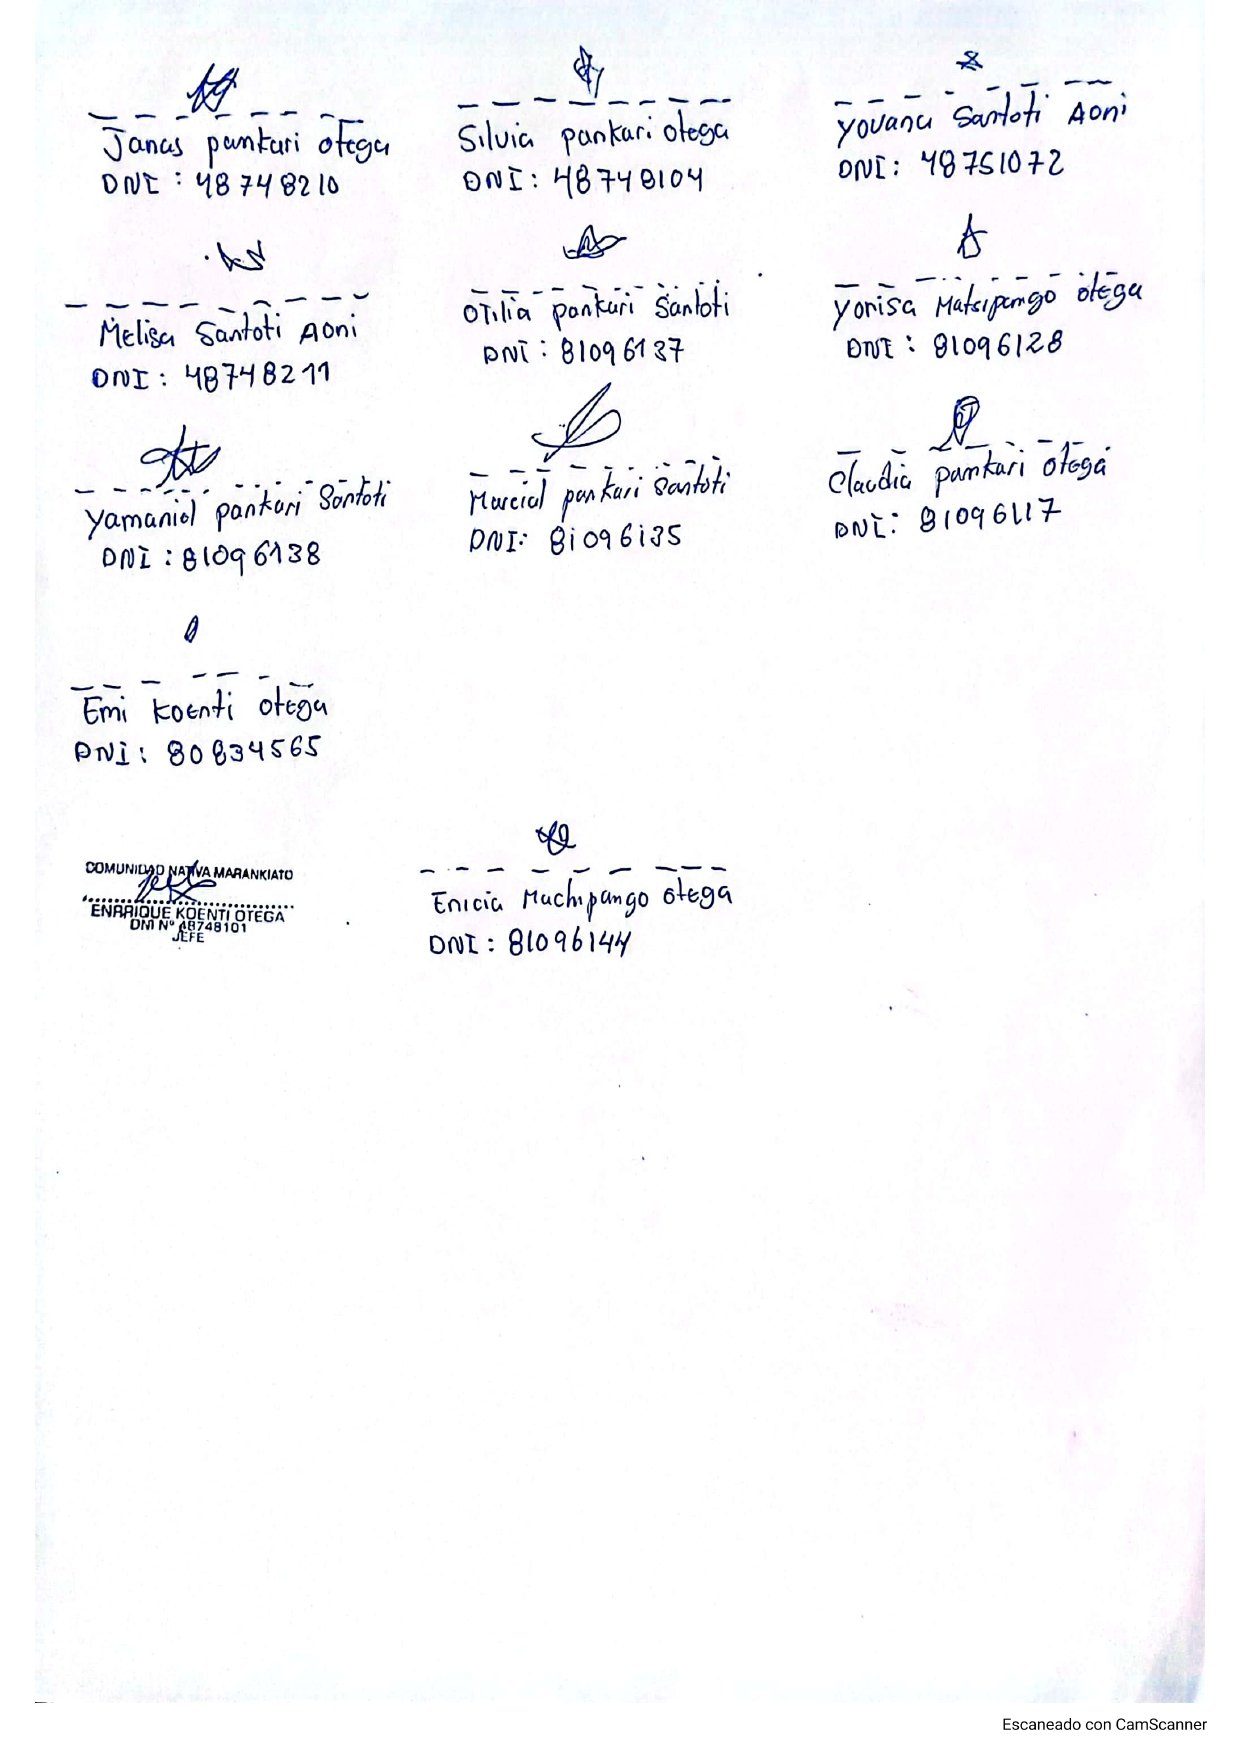 Janas pankari otega
DNI : 48748210
Silvia pankari otega
DNI : 48748104
yovana Santoti Aoni
DNI : 48751072
Melisa Santoti Aoni
DNI : 48748211
Otilia pankari Santoti
DNI : 81096137
yorisa Matsipango otega
DNI : 81096128
yamaniel pankari Santoti
DNI : 81096138
Marcial pankari Santoti
DNI: 81096135
Claudia pankari otega
DNI:
Emi Koenti otega
DNI: 80834565
COMUNIDAD NATIVA MARANKIATO
ENRRIQUE KOENTI OTEGA
DNI Nº 48748101
JEFE
Enicia Machipango otega
DNI : 81096144
Escaneado con CamScanner